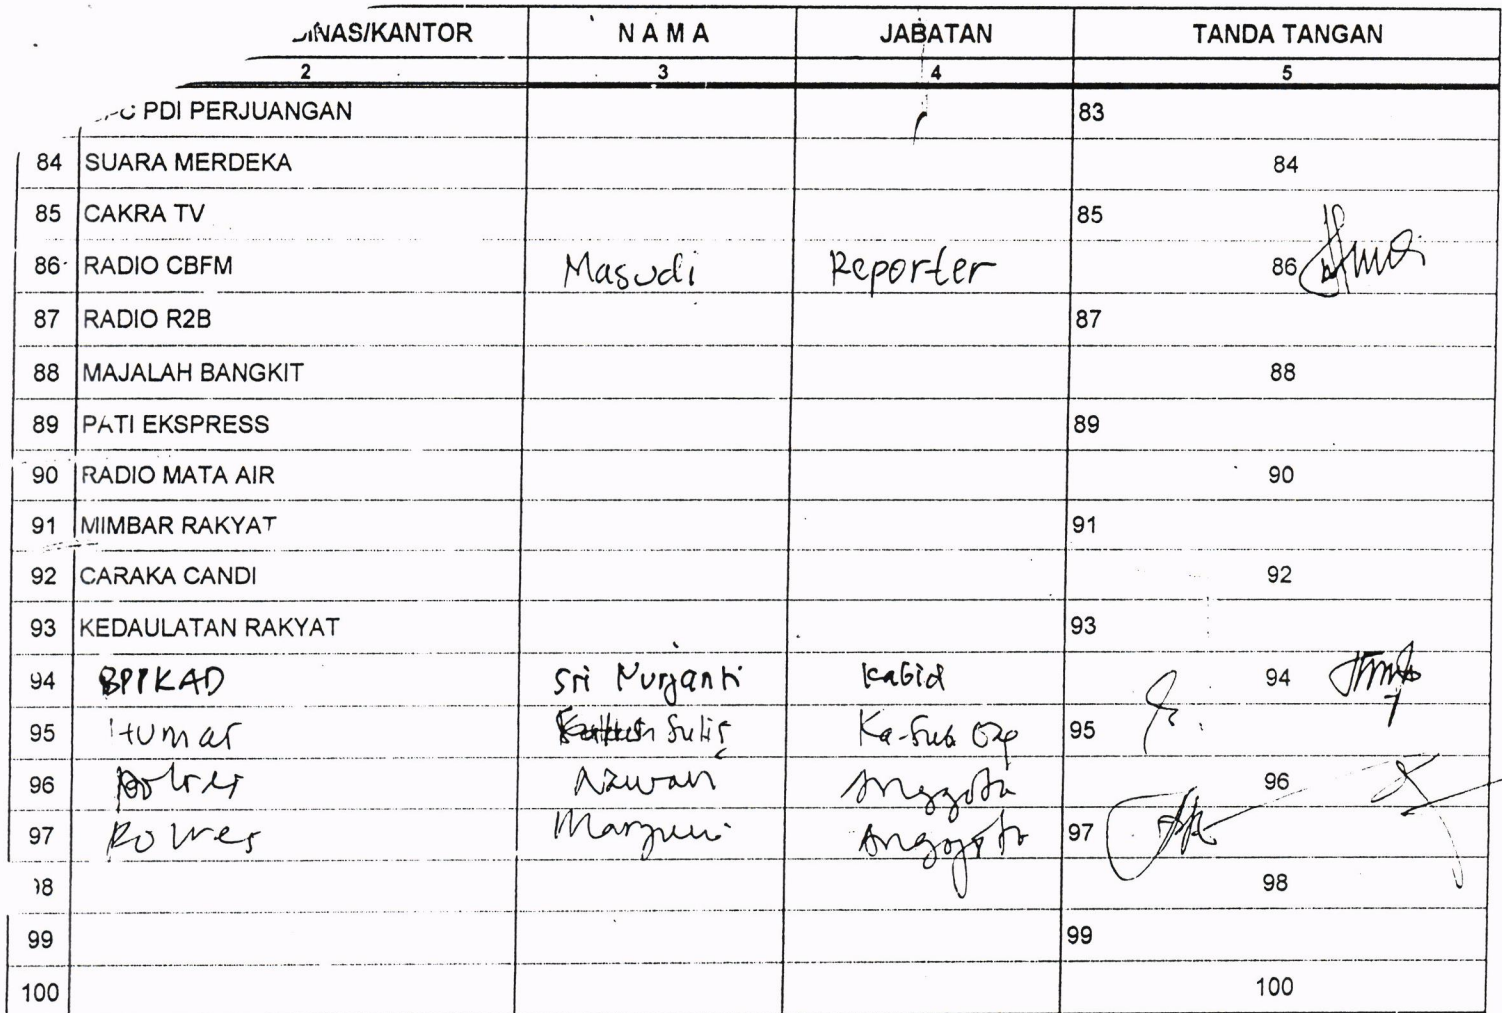 INAS/KANTOR NAMA JABATAN TANDA TANGAN
2 3 4 5
C PDI PERJUANGAN 83
84 SUARA MERDEKA 84
85 CAKRA TV 85
86 RADIO CBFM Masudi Reporter 86
87 RADIO R2B 87
88 MAJALAH BANGKIT 88
89 PATI EKSPRESS 89
90 RADIO MATA AIR 90
91 MIMBAR RAKYAT 91
92 CARAKA CANDI 92
93 KEDAULATAN RAKYAT 93
94 BPPKAD Sri Nurjanti Kabid 94
95 Humas Sulis Ka-Sub 95
96 Polres Azwan Anggota 96
97 Polres Anggota 97
98 98
99 99
100 100